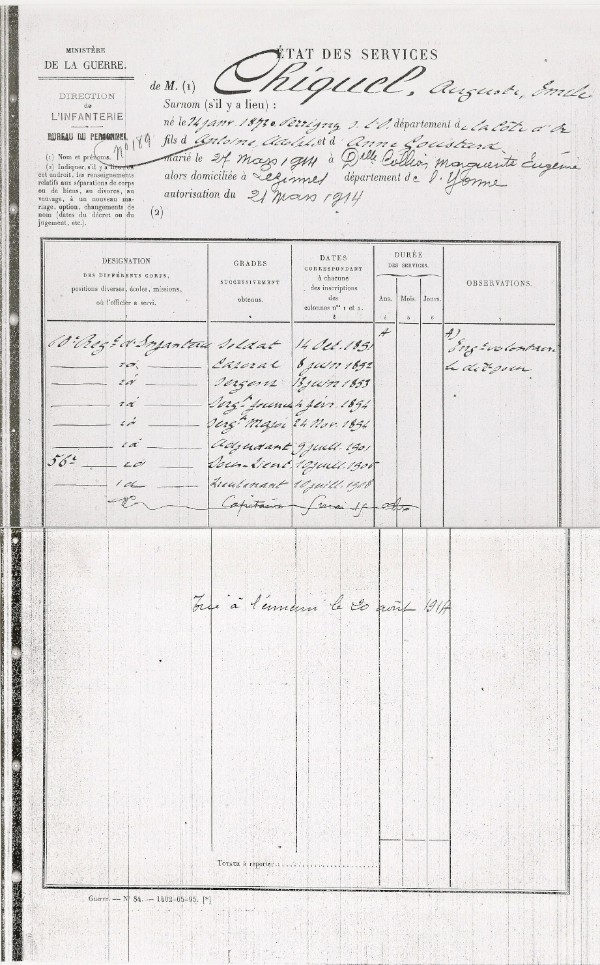 MINISTÈRE
DE LA GUERRE.
DIRECTION
de
L'INFANTERIE
BUREAU DU PERSONNEL
No 189
(1) Nom et prénoms.
(2) Indiquer, s'il y a lieu
cet endroit, les renseignements
relatifs aux séparations de corps
ou de biens, au divorce, au
veuvage, à un nouveau ma-
riage, option, changements de
nom (dates du décret ou du
jugement, etc.).
ÉTAT DES SERVICES
de M. (1) Chiquel, Auguste, Emile
Surnom (s'il y a lieu) :
né le 24 janv. 1872 à Perrigny département de la Côte d'Or
fils d' Antoine et d' Anne Goustard
marié le 27 mars 1914 à Delle Marguerite Eugénie
alors domiciliée à Lezinnes département de l'Yonne
autorisation du 21 mars 1914
(2)
DÉSIGNATION
DES DIFFÉRENTS CORPS,
positions diverses, écoles, missions,
où l'officier a servi.
1
GRADES
SUCCESSIVEMENT
obtenus.
2
DATES
CORRESPONDANT
à chacune
des inscriptions
des
colonnes nos 1 et 2.
3
DURÉE
DES SERVICES.
Ans. Mois. Jours.
4 5 6
OBSERVATIONS.
7
10e Régt d'Infanterie Soldat 14 Oct. 1891 A A) Engt volontaire
id Caporal 8 juin 1892 le dit jour
id Sergent 1893
id Sergt fourrier 4 févr. 1894
id Sergt Major 24 Nov. 1894
id Adjudant 9 juill. 1901
56e id Sous-Lieut 1906
id Lieutenant 10 juill. 1908
Capitaine
Tué à l'ennemi le 20 août 1914
Totaux à reporter
Guerre. — No 54. — 1402-05-05. [*]